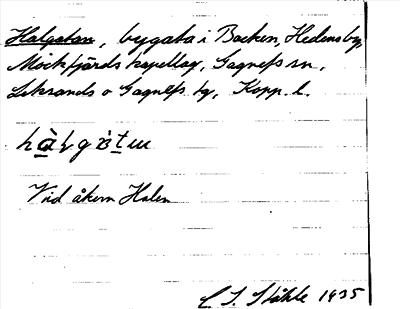 Halgatan, bygata i Backen, Hedens by,
Mockfjärds kapellag, Gagnefs sn,
Leksands o Gagnefs tg, Kopp. l.
Vid åkern Halen
C. I. Ståhle 1935